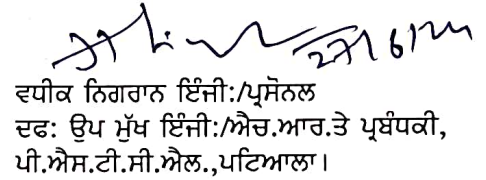 27/6/22
ਵਧੀਕ ਨਿਗਰਾਨ ਇੰਜੀ:/ਪ੍ਰਸੋਨਲ
ਦਫ: ਉਪ ਮੁੱਖ ਇੰਜੀ:/ਐਚ.ਆਰ.ਤੇ ਪ੍ਰਬੰਧਕੀ,
ਪੀ.ਐਸ.ਟੀ.ਸੀ.ਐਲ.,ਪਟਿਆਲਾ।